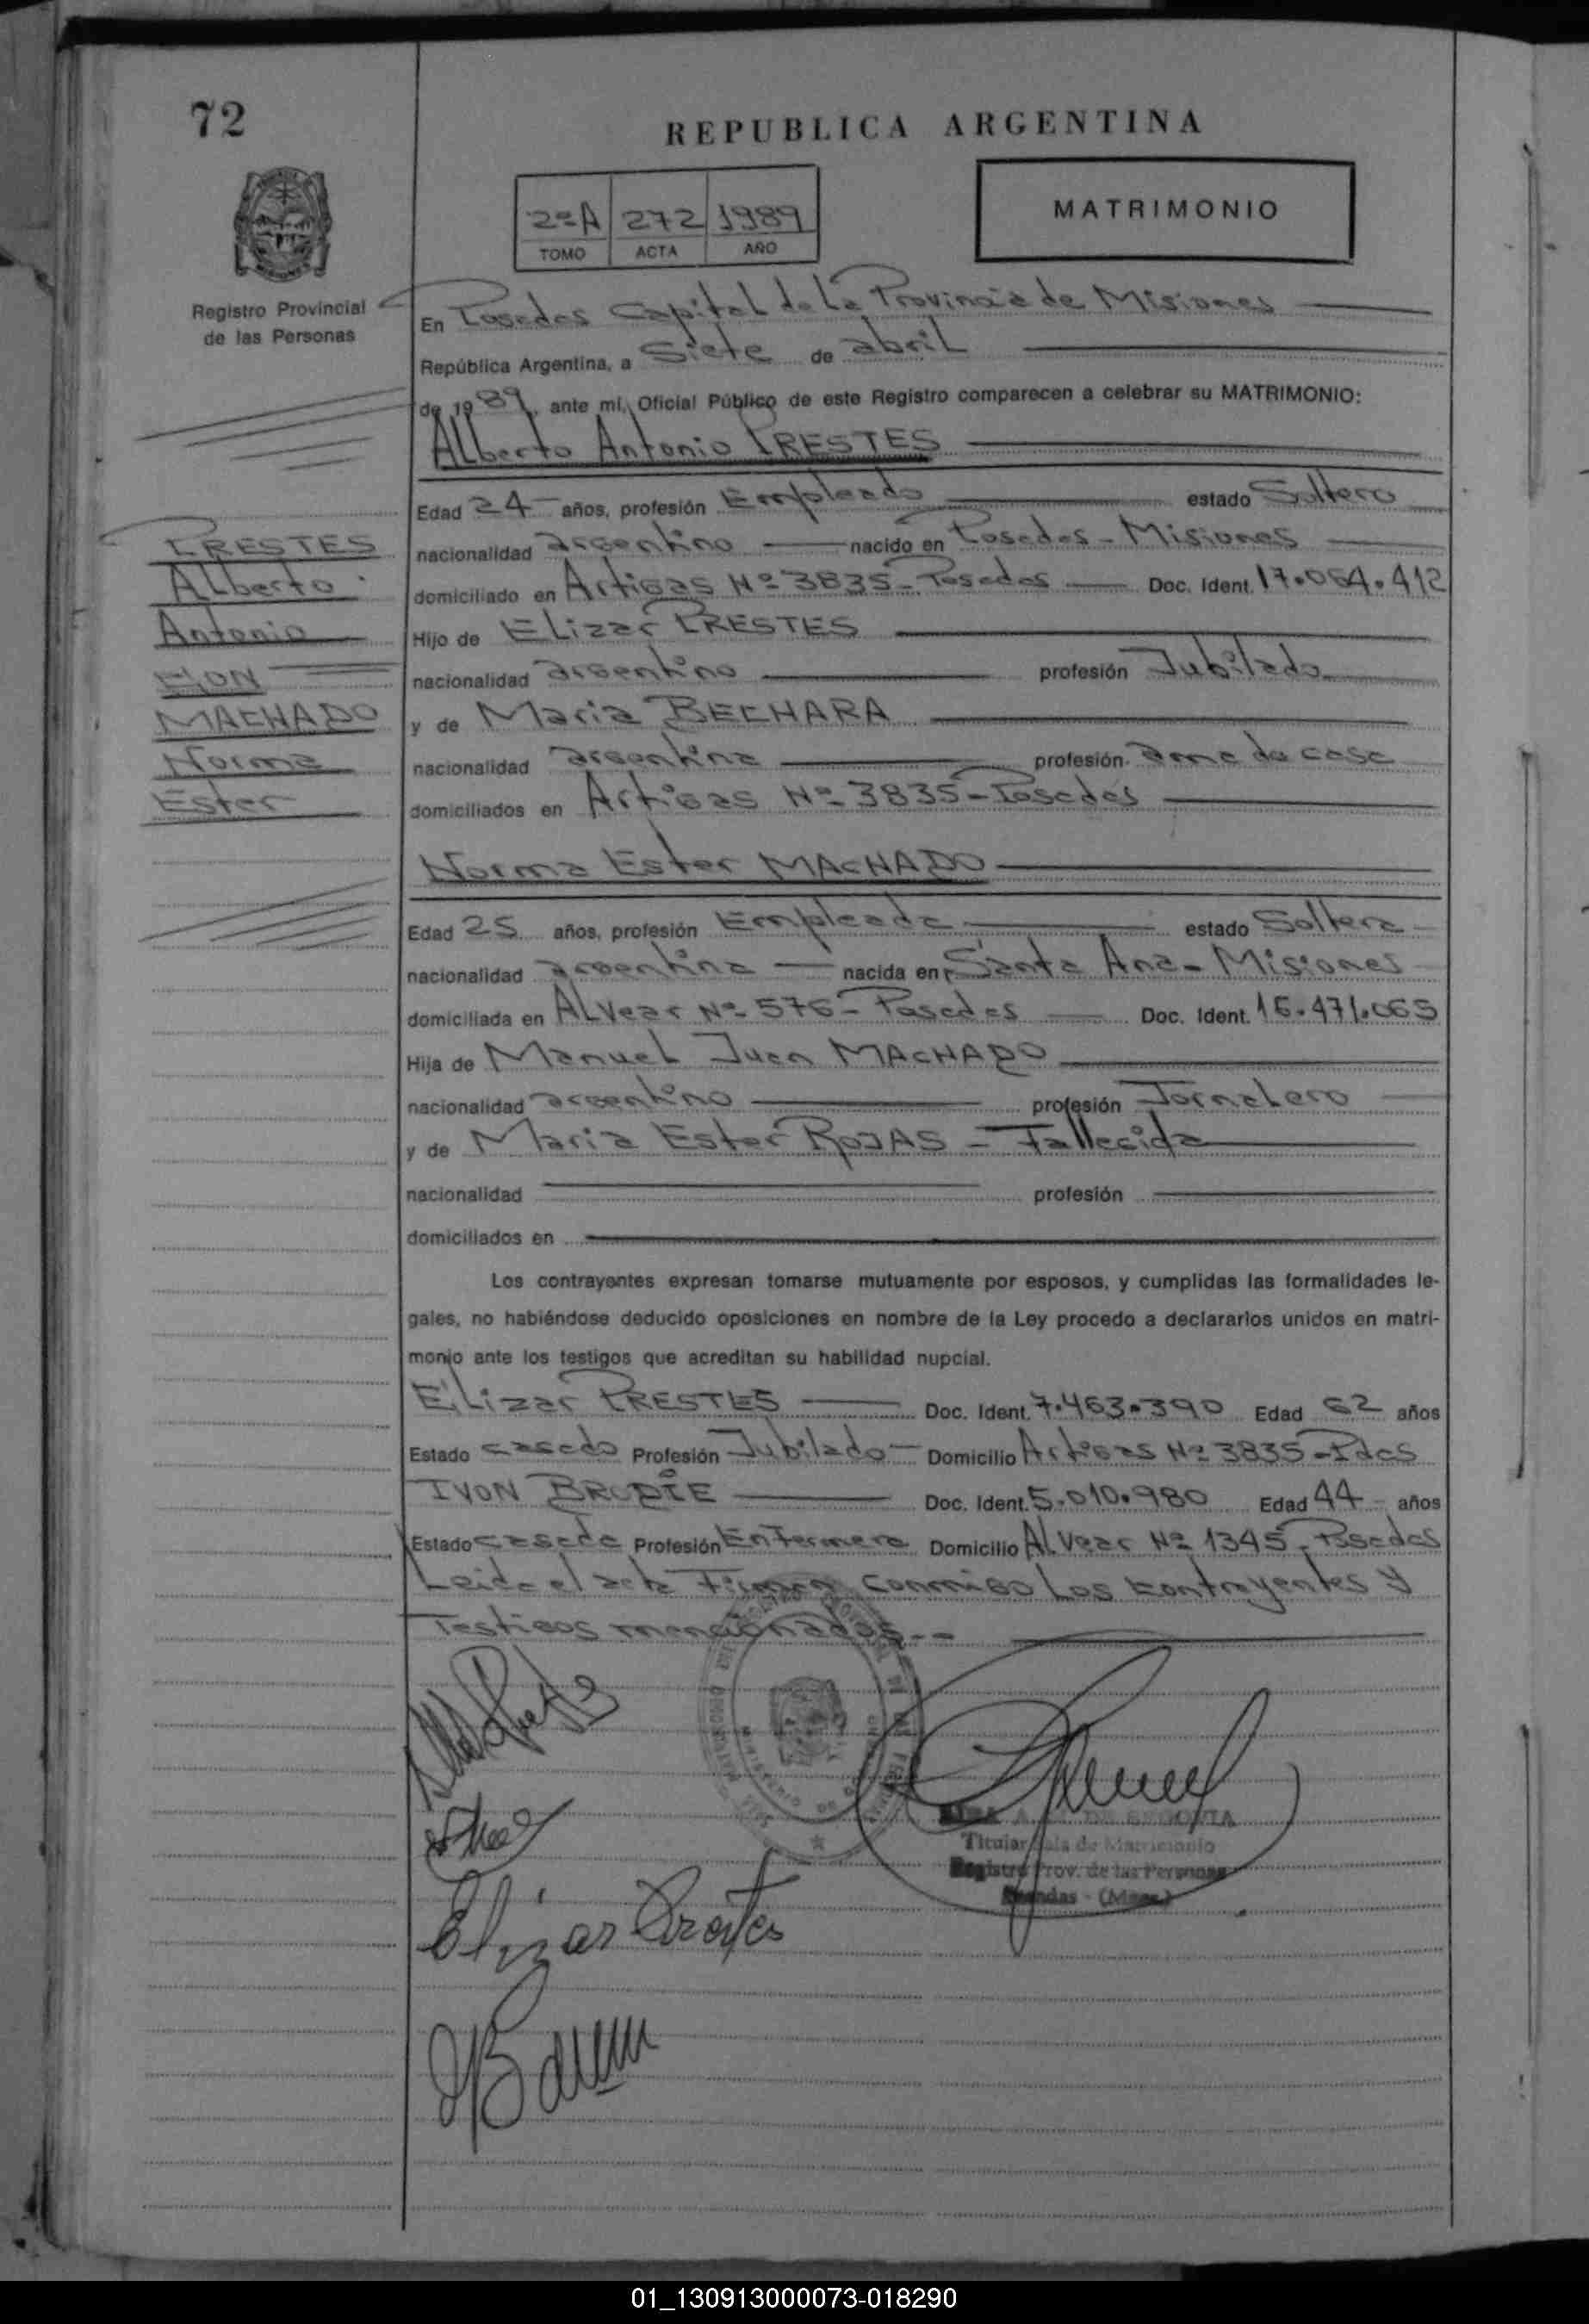 72
REPUBLICA ARGENTINA
2ºA 272 1989
TOMO ACTA AÑO
MATRIMONIO
Registro Provincial
de las Personas
En Posadas Capital de la Provincia de Misiones
República Argentina, a Siete de abril
de 1989, ante mí, Oficial Público de este Registro comparecen a celebrar su MATRIMONIO:
Alberto Antonio PRESTES
Edad 24 años, profesión Empleado estado Soltero
nacionalidad argentino nacido en Posadas - Misiones
domiciliado en Artigas Nº 3835 - Posadas Doc. Ident. 17.064.412
Hijo de Elizar PRESTES
nacionalidad argentino profesión Jubilado
y de Maria BECHARA
nacionalidad argentina profesión ama de casa
domiciliados en Artigas Nº 3835 - Posadas
PRESTES
Alberto
Antonio
CON
MACHADO
Norma
Ester
Norma Ester MACHADO
Edad 25 años, profesión Empleada estado Soltera
nacionalidad argentina nacida en Santa Ana - Misiones
domiciliada en Alvear Nº 576 - Posadas Doc. Ident. 16.471.065
Hija de Manuel Juan MACHADO
nacionalidad argentino profesión Jornalero
y de Maria Ester ROJAS - Fallecida
nacionalidad profesión
domiciliados en
Los contrayentes expresan tomarse mutuamente por esposos, y cumplidas las formalidades le-
gales, no habiéndose deducido oposiciones en nombre de la Ley procedo a declararlos unidos en matri-
monio ante los testigos que acreditan su habilidad nupcial.
Elizar PRESTES Doc. Ident. 7.463.390 Edad 62 años
Estado casado Profesión Jubilado Domicilio Artigas Nº 3835 - Pdas
IVON Doc. Ident. 5.010.980 Edad 44 años
Estado casada Profesión Enfermera Domicilio Alvear Nº 1345 - Posadas
Leida el acta Firman conmigo los contrayentes y
Testigos mencionados.--
DE SEGOVIA
Titular Sala de Matrimonio
Registro Prov. de las Personas
Posadas - (Mnes.)
Elizar Prestes
01_130913000073-018290